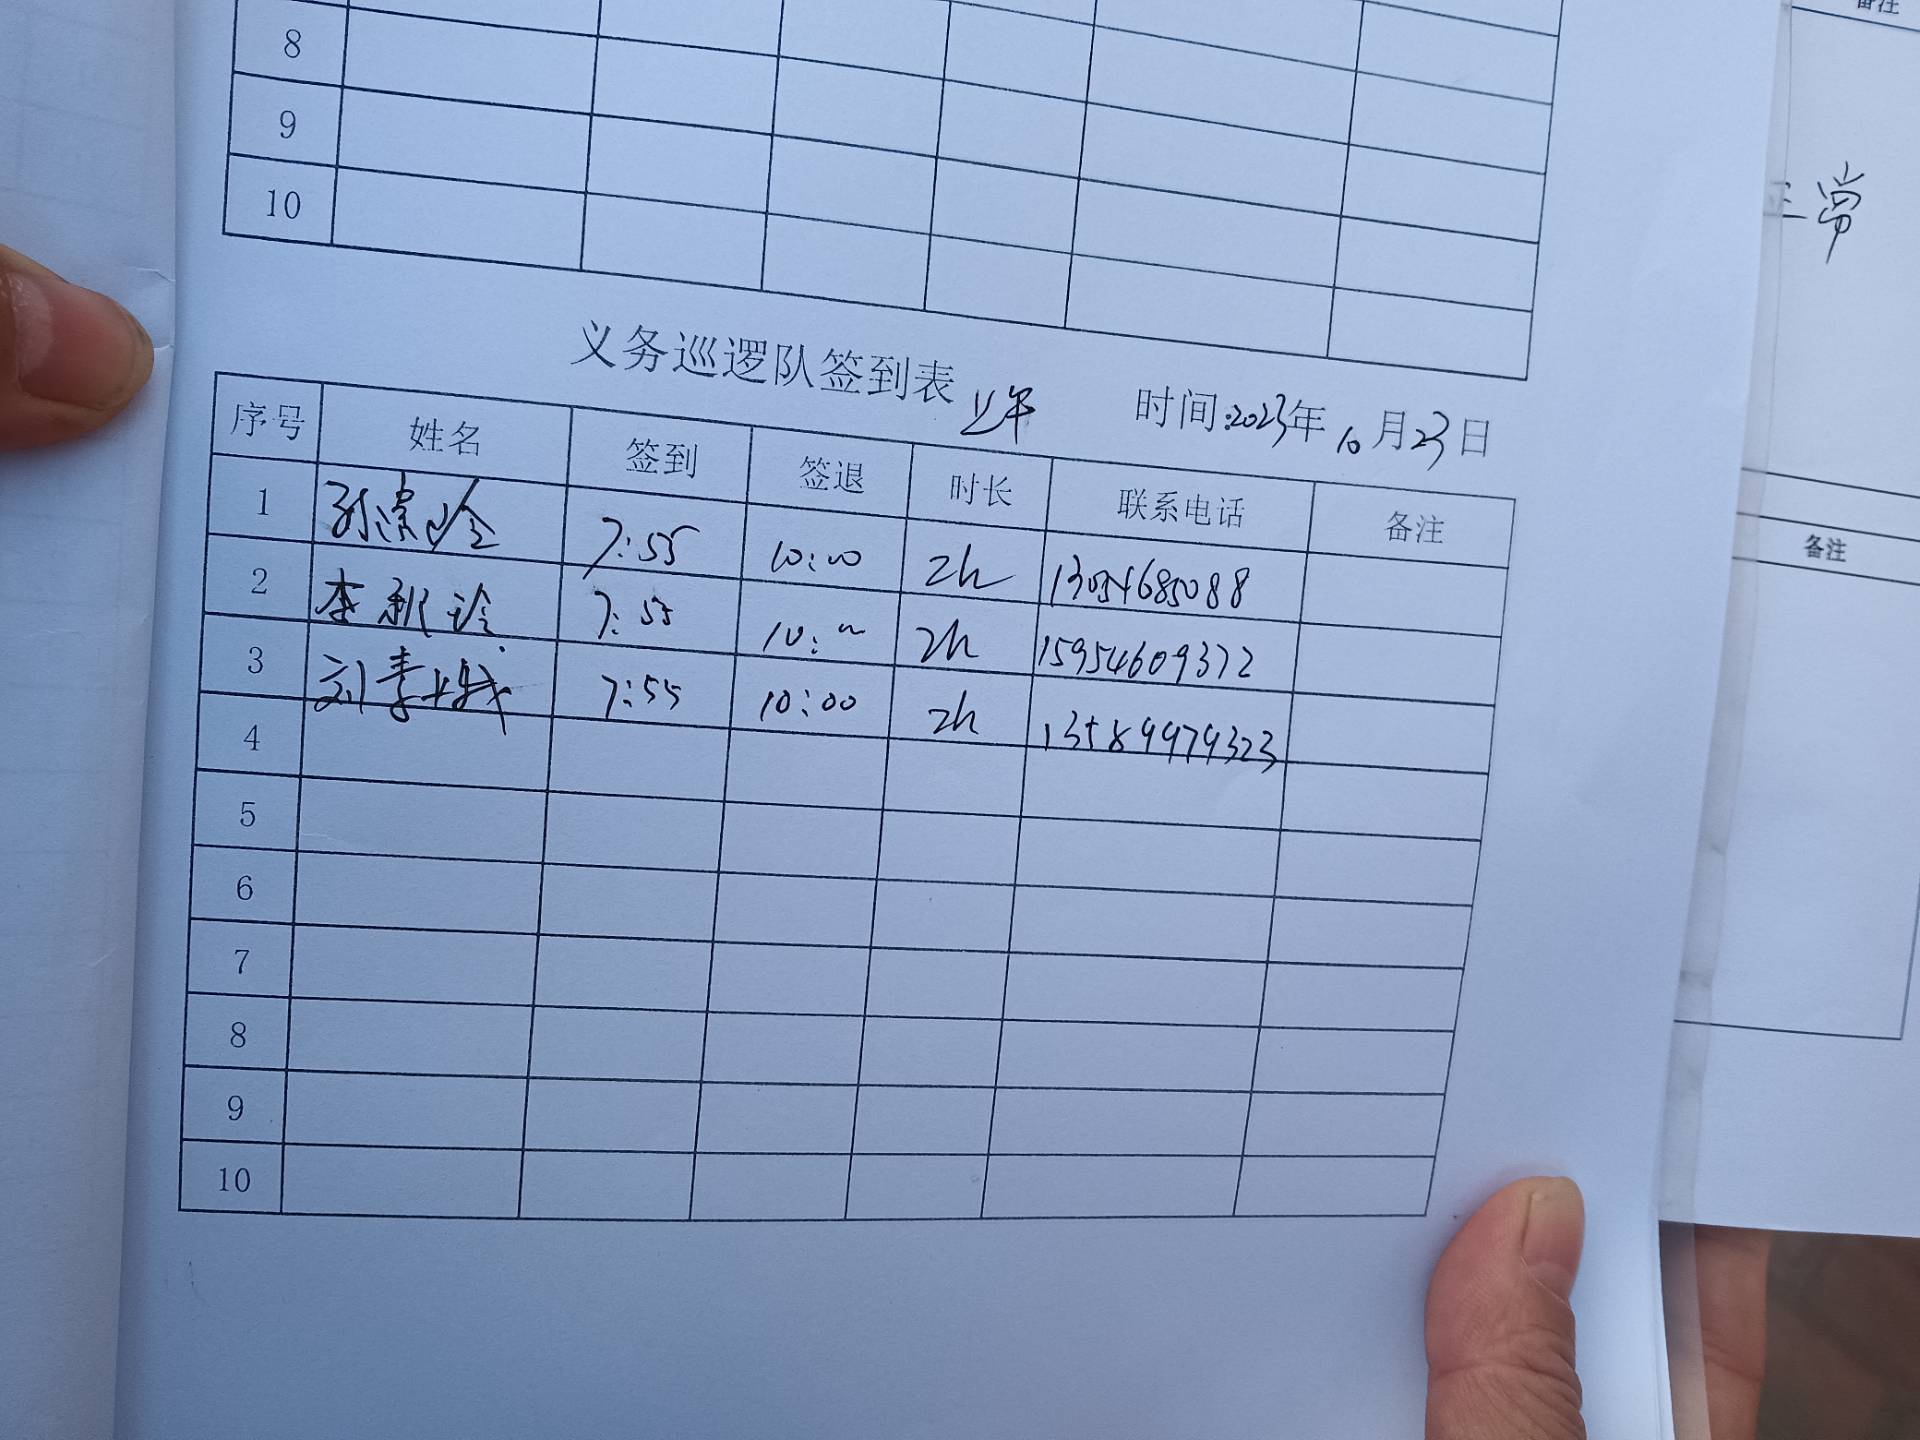 备注
8
9
10
正常
义务巡逻队签到表 上午 时间:2023年10月23日
序号 姓名 签到 签退 时长 联系电话 备注
1 7:55 10:00 2h
2 7:55 10:00 2h 15954609372
3 刘青娥 7:55 10:00 2h 13589979323
4
5
6
7
8
9
10
备注